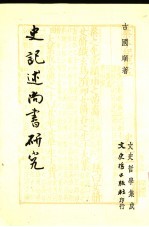 古國順著
史記述尚書研究
文史哲學集成
文史哲出版社印行